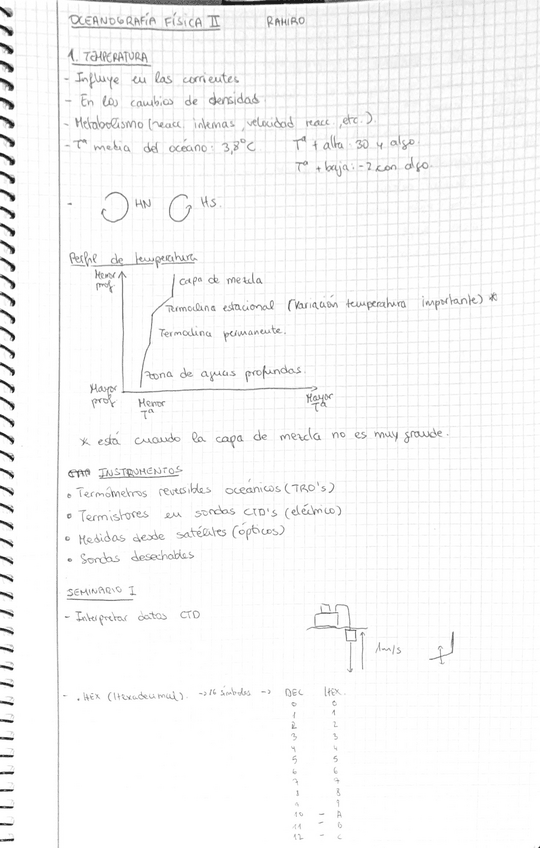 OCEANOGRAFÍA FÍSICA II RAMIRO
1. TEMPERATURA
- Influye en las corrientes
- En los cambios de densidad
- Metabolismo (reacc. internas, velocidad reacc., etc.)
- Tª media del océano: 3,8°C Tª + alta: 30 y algo
Tª + baja: -2 con algo.
- HN HS.
Perfil de temperatura
Menor prof
capa de mezcla
Termoclina estacional (Variación temperatura importante) *
Termoclina permanente.
zona de aguas profundas.
Mayor prof
Menor Tª
Mayor Tª
* está cuando la capa de mezcla no es muy grande.
INSTRUMENTOS
• Termómetros reversibles oceánicos (TRO's)
• Termistores en sondas CTD's (eléctrico)
• Medidas desde satélites (ópticos)
• Sondas desechables
SEMINARIO I
- Interpretar datos CTD
1m/s
- .HEX (Hexadecimal). → 16 símbolos → DEC HEX.
0 0
1 1
2 2
3 3
4 4
5 5
6 6
7 7
8 8
9 9
10 - A
11 - B
12 - C